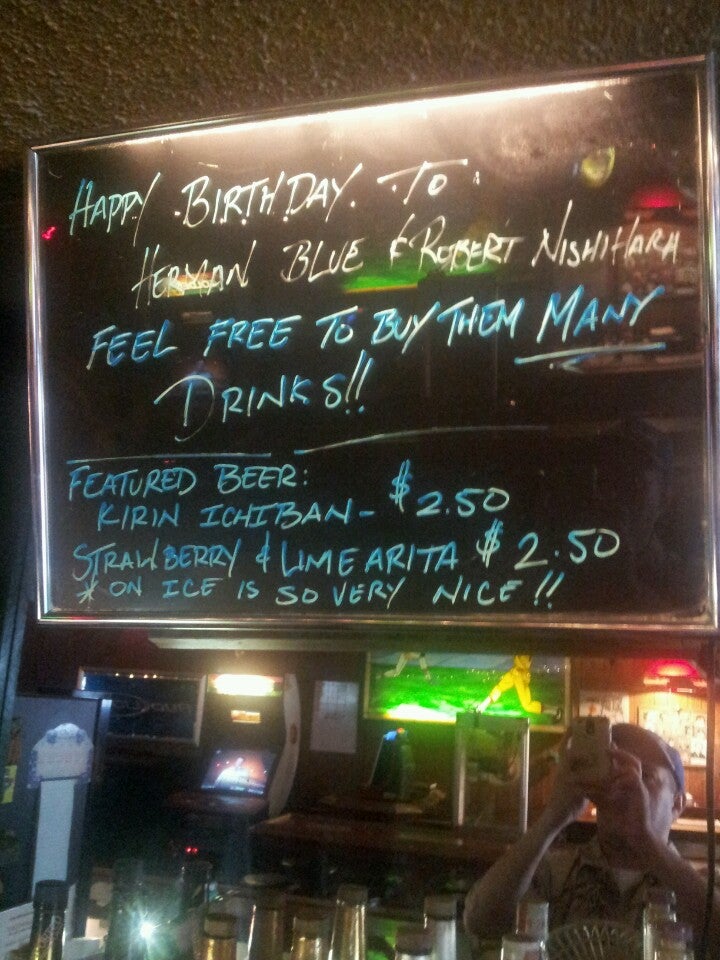 HAPPY BIRTHDAY TO
HERMAN BLUE & ROBERT NISHIHARA
FEEL FREE TO BUY THEM MANY
DRINKS!!
FEATURED BEER:
KIRIN ICHIBAN - $2.50
STRAWBERRY & LIME ARITA $2.50
* ON ICE IS SO VERY NICE!!